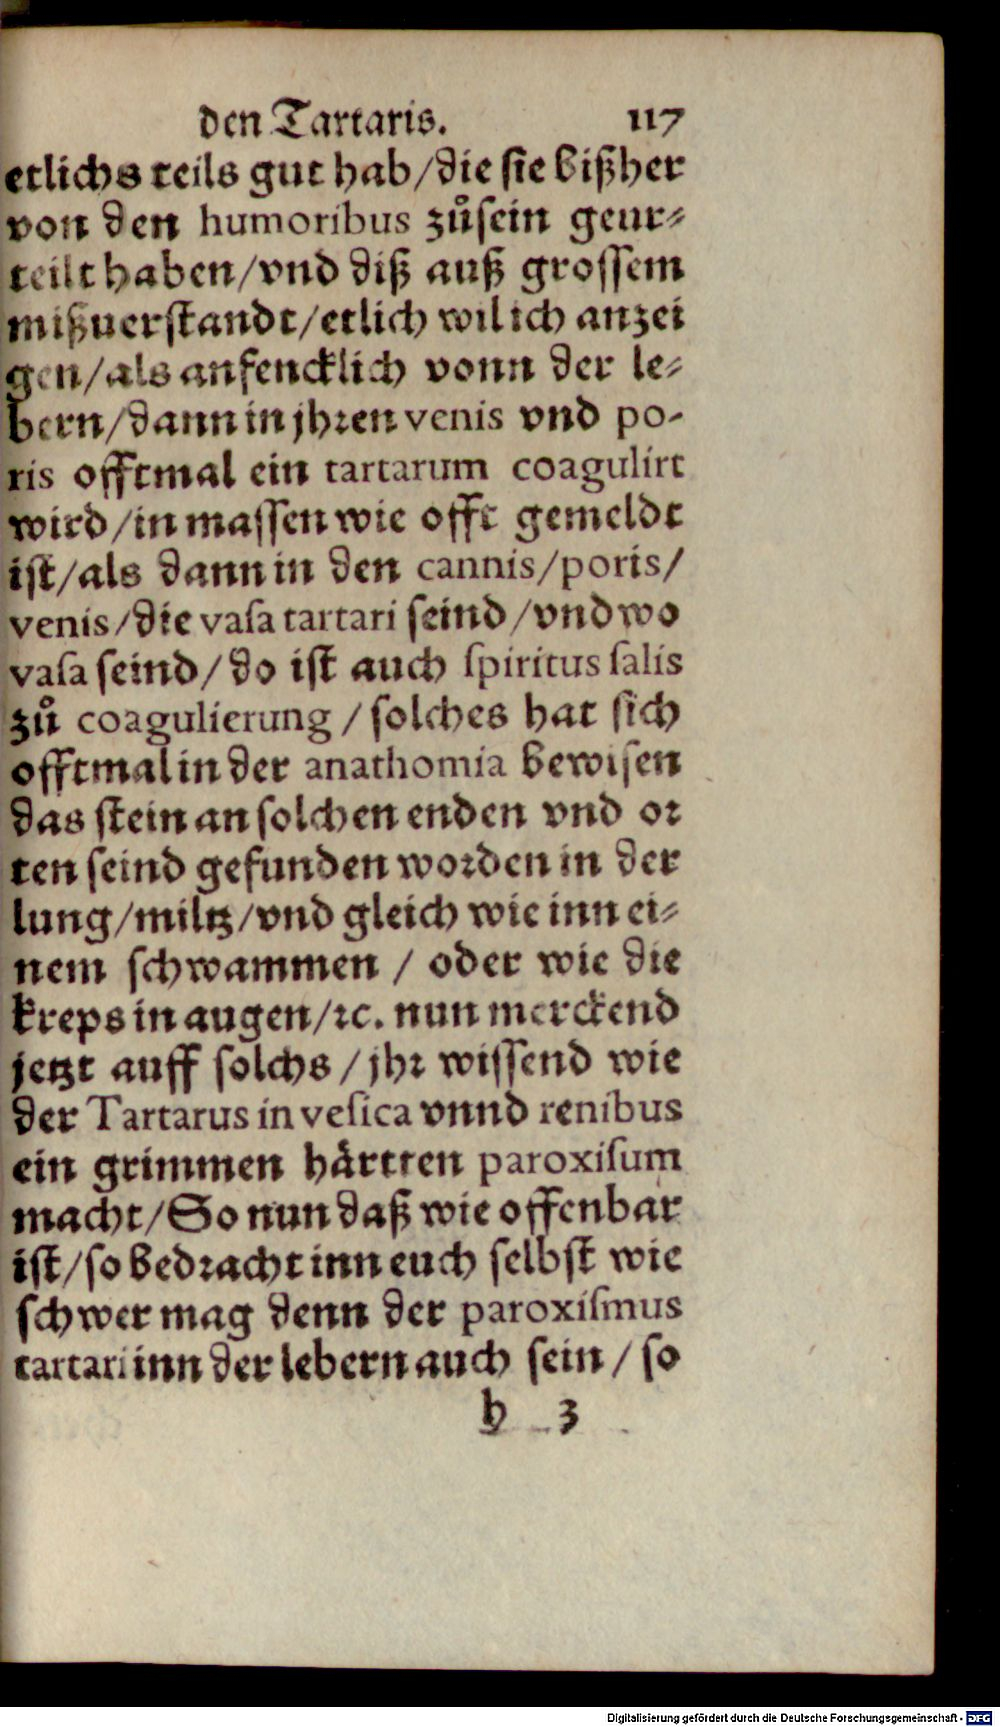 den Tartaris. 117
etlichs teils gut hab/die sie bißher
von den humoribus zůsein geur⸗
teilt haben/vnd diß auß grossem
mißuerstandt/etlich wil ich anzei
gen/als anfencklich vonn der le⸗
bern/dann in jhren venis vnd po-
ris offtmal ein tartarum coagulirt
wird/in massen wie offt gemeldt
ist/als dann in den cannis/poris/
venis/die vasa tartari seind/vnd wo
vasa seind/do ist auch spiritus salis
zů coagulierung/solches hat sich
offtmal in der anathomia bewisen
das stein an solchen enden vnd or
ten seind gefunden worden in der
lung/miltz/vnd gleich wie inn ei⸗
nem schwammen/oder wie die
kreps in augen/ꝛc. nun merckend
jetzt auff solchs/jhr wissend wie
der Tartarus in vesica vnnd renibus
ein grimmen härtten paroxisum
macht/So nun daß wie offenbar
ist/so bedracht inn euch selbst wie
schwer mag denn der paroxismus
tartari inn der lebern auch sein/so
h 3
Digitalisierung gefördert durch die Deutsche Forschungsgemeinschaft - DFG